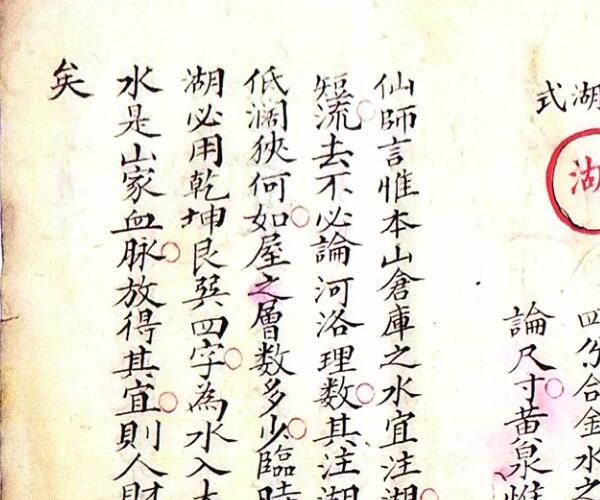 湖式
湖
四分合金水之
論尺寸黃泉惟
仙師言惟本山倉庫之水宜注湖
短流去不必論河洛理数其注湖
低濶狹何如屋之層数多少臨時
湖必用乾坤艮巽四字為水入
水是山家血脉放得其宜則人財
矣